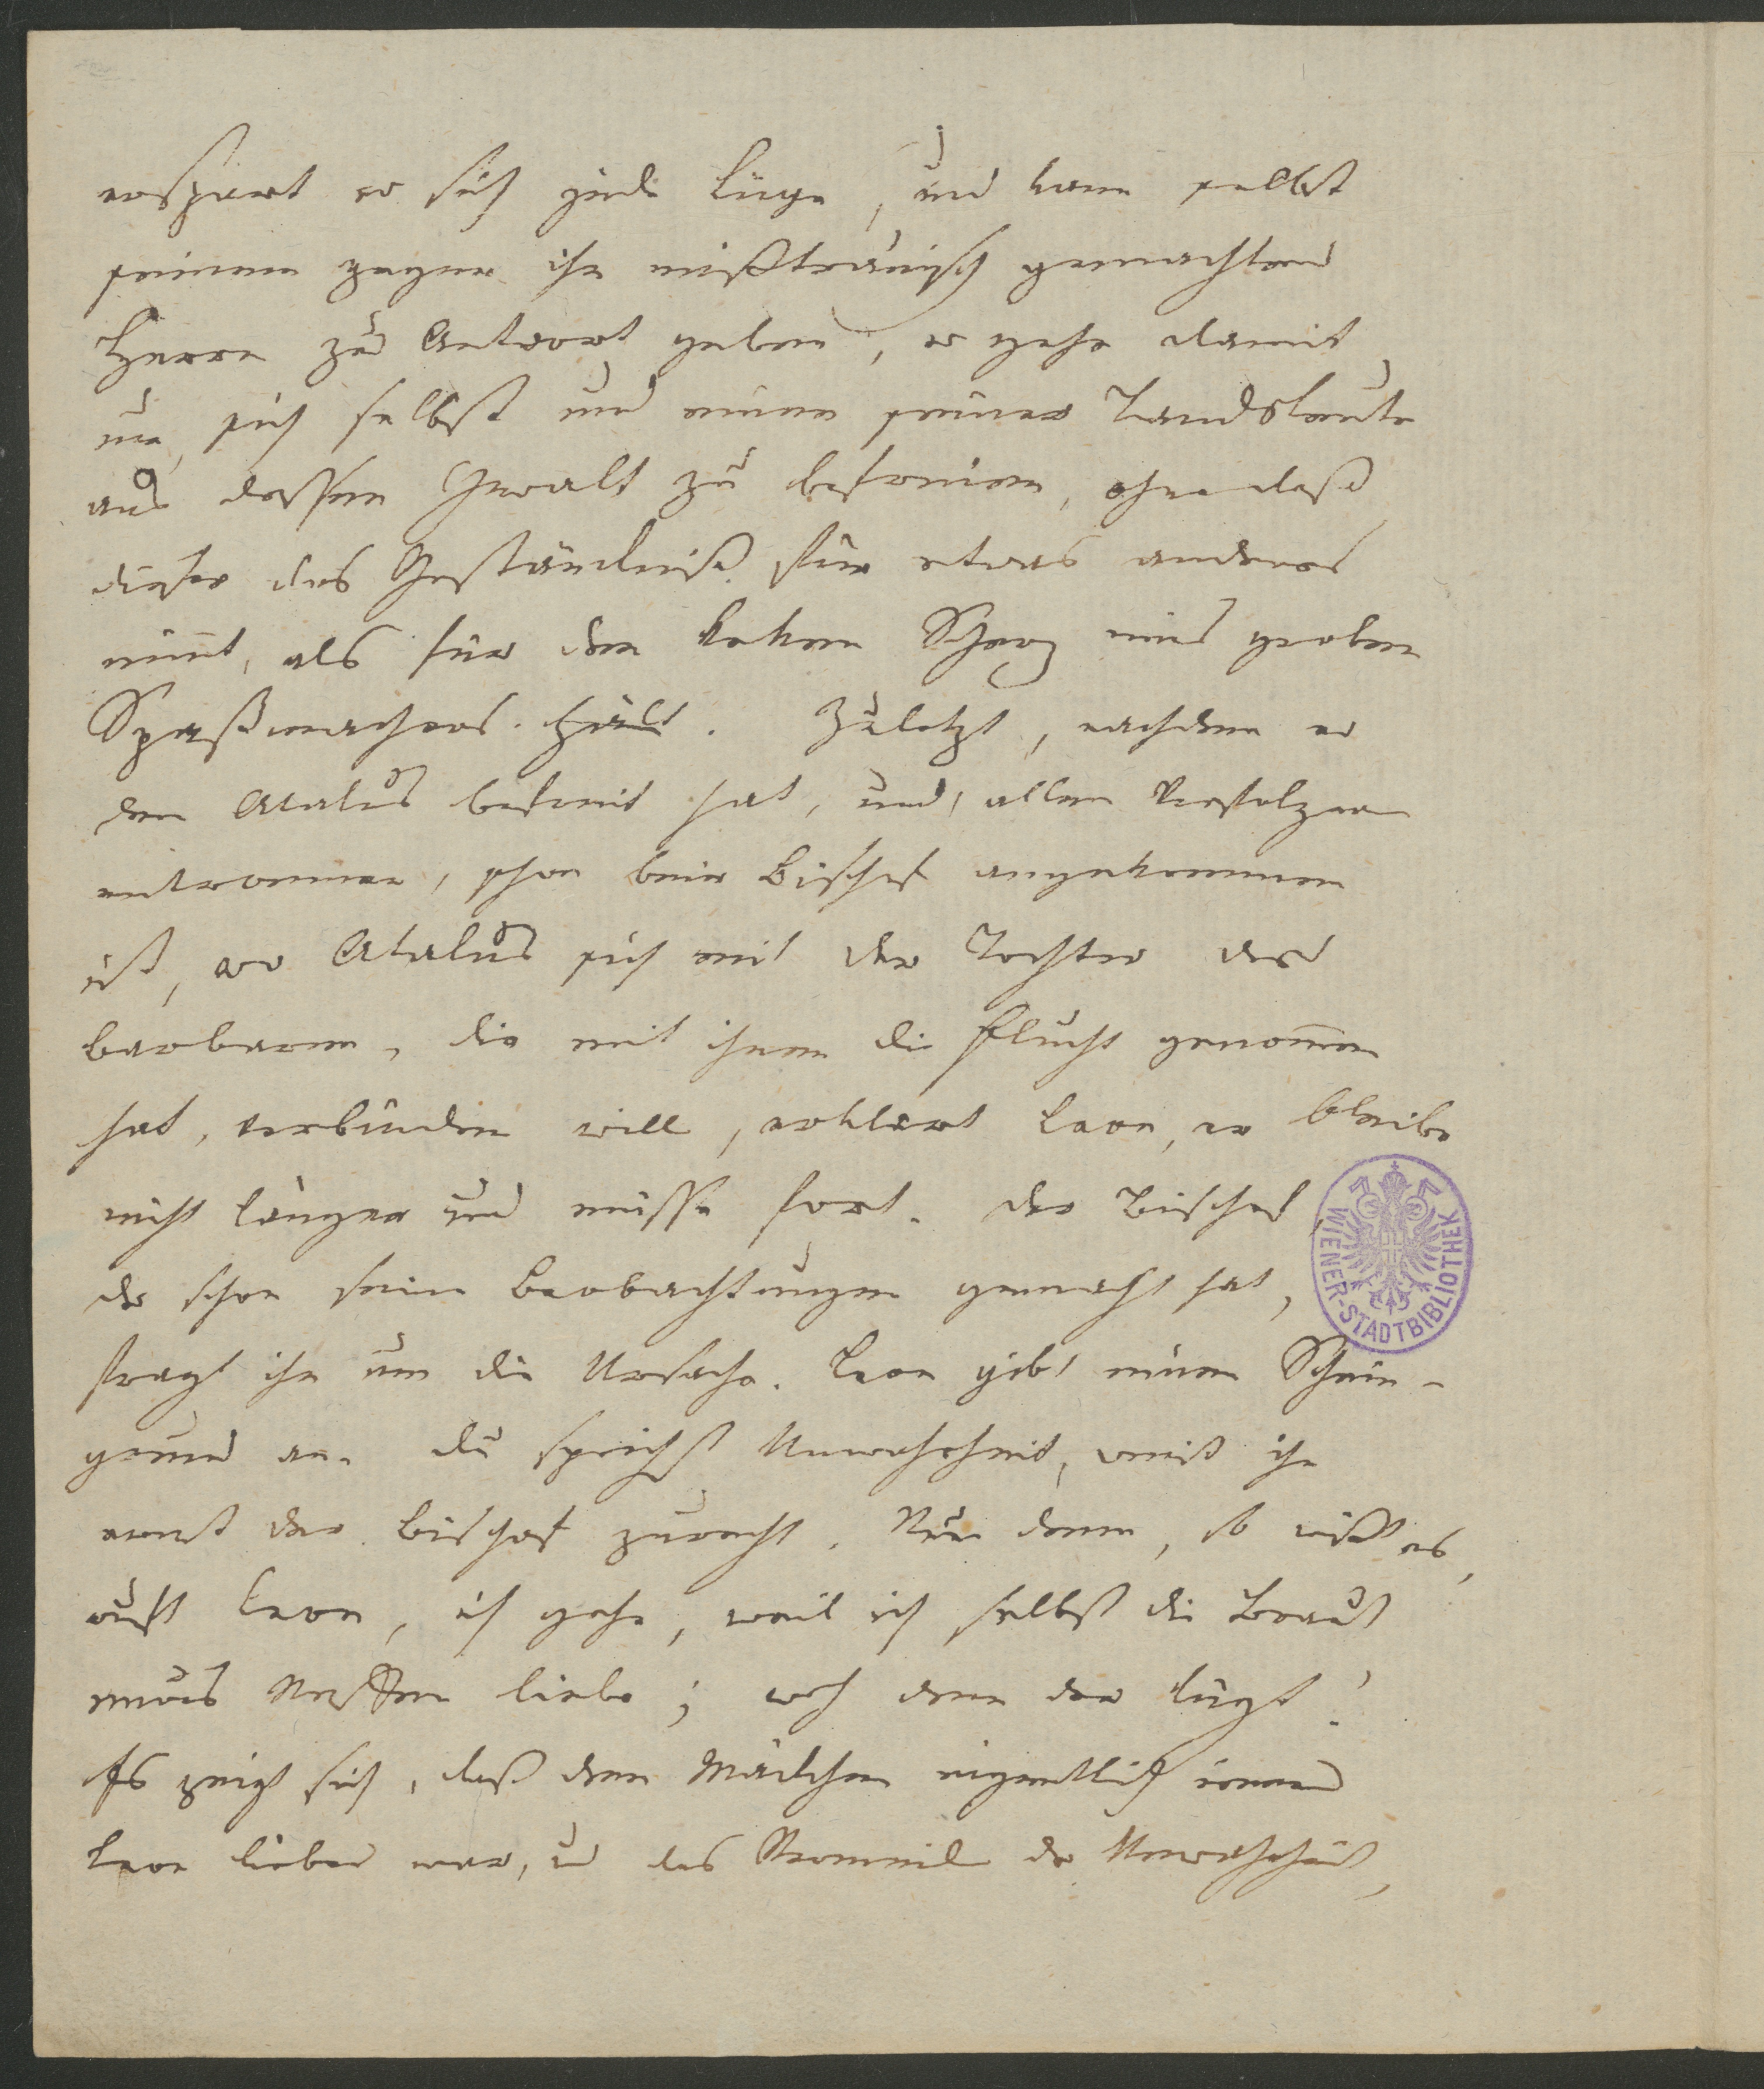 erspart er sich jede Lüge, und kann selbst
seinem gegen ihn mißtrauisch gemachten
Herrn zur Antwort geben, er gehe damit
um, sich selbst und einen seiner Landsleute
aus dessen Gewalt zu befreien, ohne daß
dieser das Geständniß für etwas anderes
nim̅t, als für den kecken Scherz eines groben
Spaßmachers. hält. Zuletzt, nachdem er
den Atalus befreit hat, und, allen Verfolgern
entronnen, schon beim Bischof angekommen
ist, wo Atalus sich mit der Tochter des
Barbaren, die mit ihnen die Flucht genom̅en
hat, verbinden will, erklärt Leon, er bleibe
nicht länger und müsse fort. Der Bischof,
der schon seine Beobachtungen gemacht hat,
fragt ihn um die Ursache. Leon gibt einen Schein-
grund an. Du sprichst Unwahrheit, weist ihn
ernst der Bischof zurecht. Nun denn, so wißt es,
ruft Leon, ich gehe, weil ich selbst die Braut
eures Neffen liebe; weh dem der lügt!
Es zeigt sich, daß dem Mädchen eigentlich immer
Leon lieber war, u das Vermeiden der Unwahrheit,
WIENER-STADTBIBLIOTHEK